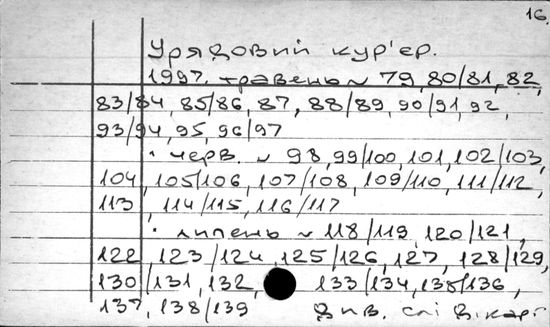 16.
Урядовий кур'єр.
1997. травень ~ 79, 80/81, 82,
83/84, 85/86, 87, 88/89, 90/91, 92,
93/94, 95, 96/97
· черв. ~ 98, 99/100, 101, 102/103,
104, 105/106, 107/108, 109/110, 111/112,
113, 114/115, 116/117
· липень ~ 118/119, 120/121,
122, 123/124, 125/126, 127, 128/129,
130/131, 132, 133/134, 135/136,
137, 138/139 Див. слі